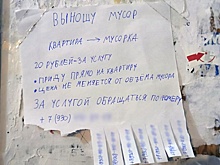 ВЫНОШУ МУСОР
КВАРТИРА → МУСОРКА
20 РУБЛЕЙ-ЗА УСЛУГУ
• ПРИДУ ПРЯМО НА КВАРТИРУ
• ЦЕНА НЕ МЕНЯЕТСЯ ОТ ОБЪЕМА МУСОРА
ЗА УСЛУГОЙ ОБРАЩАТЬСЯ ПО НОМЕРУ
+7 (930)